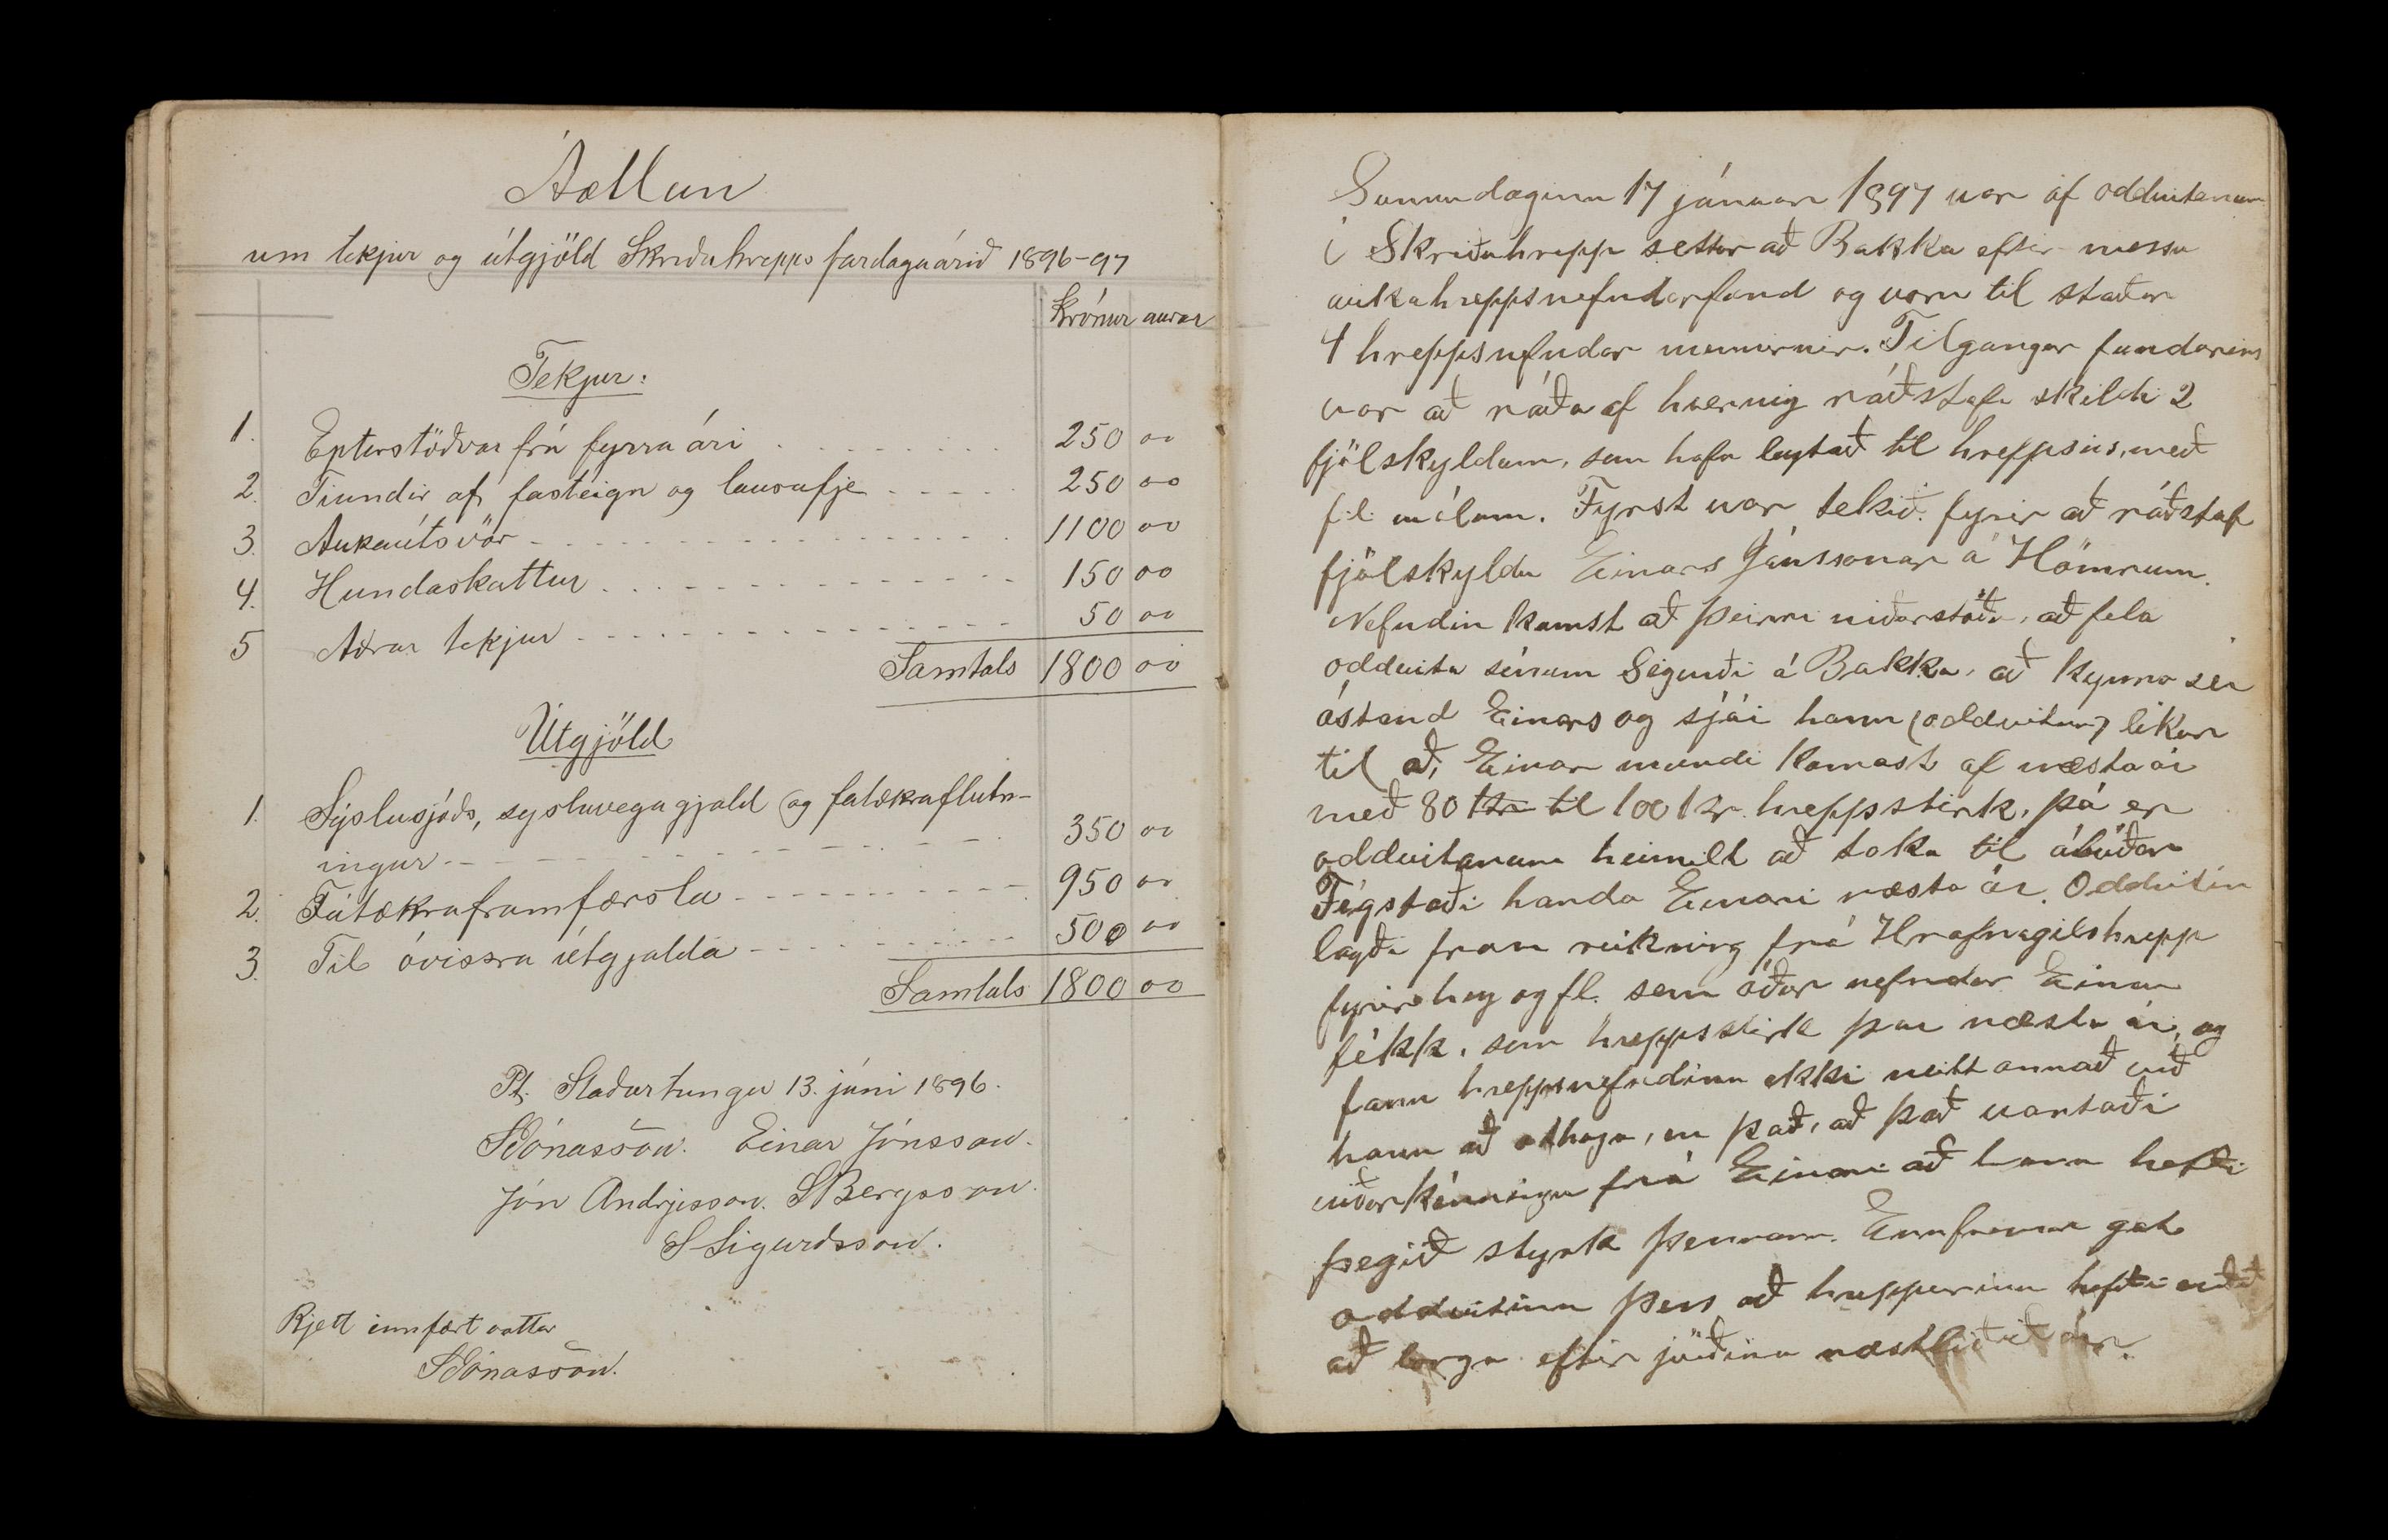 Áætlun
um tekjur og útgjöld Skriðuhrepps fardagaárið 1896-97
Krónur aurar
Tekjur:
1. Epterstöðvar frá fyrra ári 250 00
2. Tiundir af fasteign og lausafje 250 00
3. Aukaútsvör 1100 00
4. Hundaskattur 150 00
5 Aðrar tekjur 50 00
Samtals 1800 00
Útgjöld
1. Sýslusjóðs, sysluvegagjald og fatækraflutn-
ingur 350 00
2. Fátækraframfærsla 950 00
3. Til óvissra útgjalda 500 00
Samtals 1800 00
Pt. Staðartungu 13. júni 1896.
SJónasson. Einar Jónsson.
Jón Andrjesson. SBergsson.
SSigurðsson.
Rjett innfært vottar
SJónasson.
Sunnudaginn 17 jánuar 1897 var af oddvitanum
í Skriðuhrepp settur að Bakka eftir messu
aukahreppsnefndarfund og voru til staðar
4 hreppsnefndar mennirnir. Tilgangur fundarins
var að ráða af hvernig ráðstafa skildi 2
fjölskyldum, sem hafa leytað til hreppsins, með
til mólum. Fyrst var tekið fyrir að ráðstaf
fjölskyldu Einars Jónssonar á Hömrum.
Nefndin kamst að þeirri niðurstöðu, að fela
oddvita sínum Sigurði á Bakka, að kynna sér
ástand Einars og sjái hann (oddvitinn) likur
til að, Einar mundi komast af næsta ár
með 80 kr til 100 kr. hreppsstirk, þá er
oddvitanum heimilt að taka til ábúðar
Fégstaði handa Einari næsta ár. Oddvitin
lagði fram reikning frá Hrafnagilshrepp
fyrir hey og fl. sem áður nefndur Einar
fékk, sem hreppsstirk þar næsta ár, og
fann hreppsnefndinn ekki neitt annað við
hann að athuga, en það, að það vantaði
viðurkénningu frá Einari að hann hefði
þegið styrk þennann. Ennfremur gat
oddvitinn þess að hreppurinn hefði orðið
að borga eftir jörðina næstliðið ár.